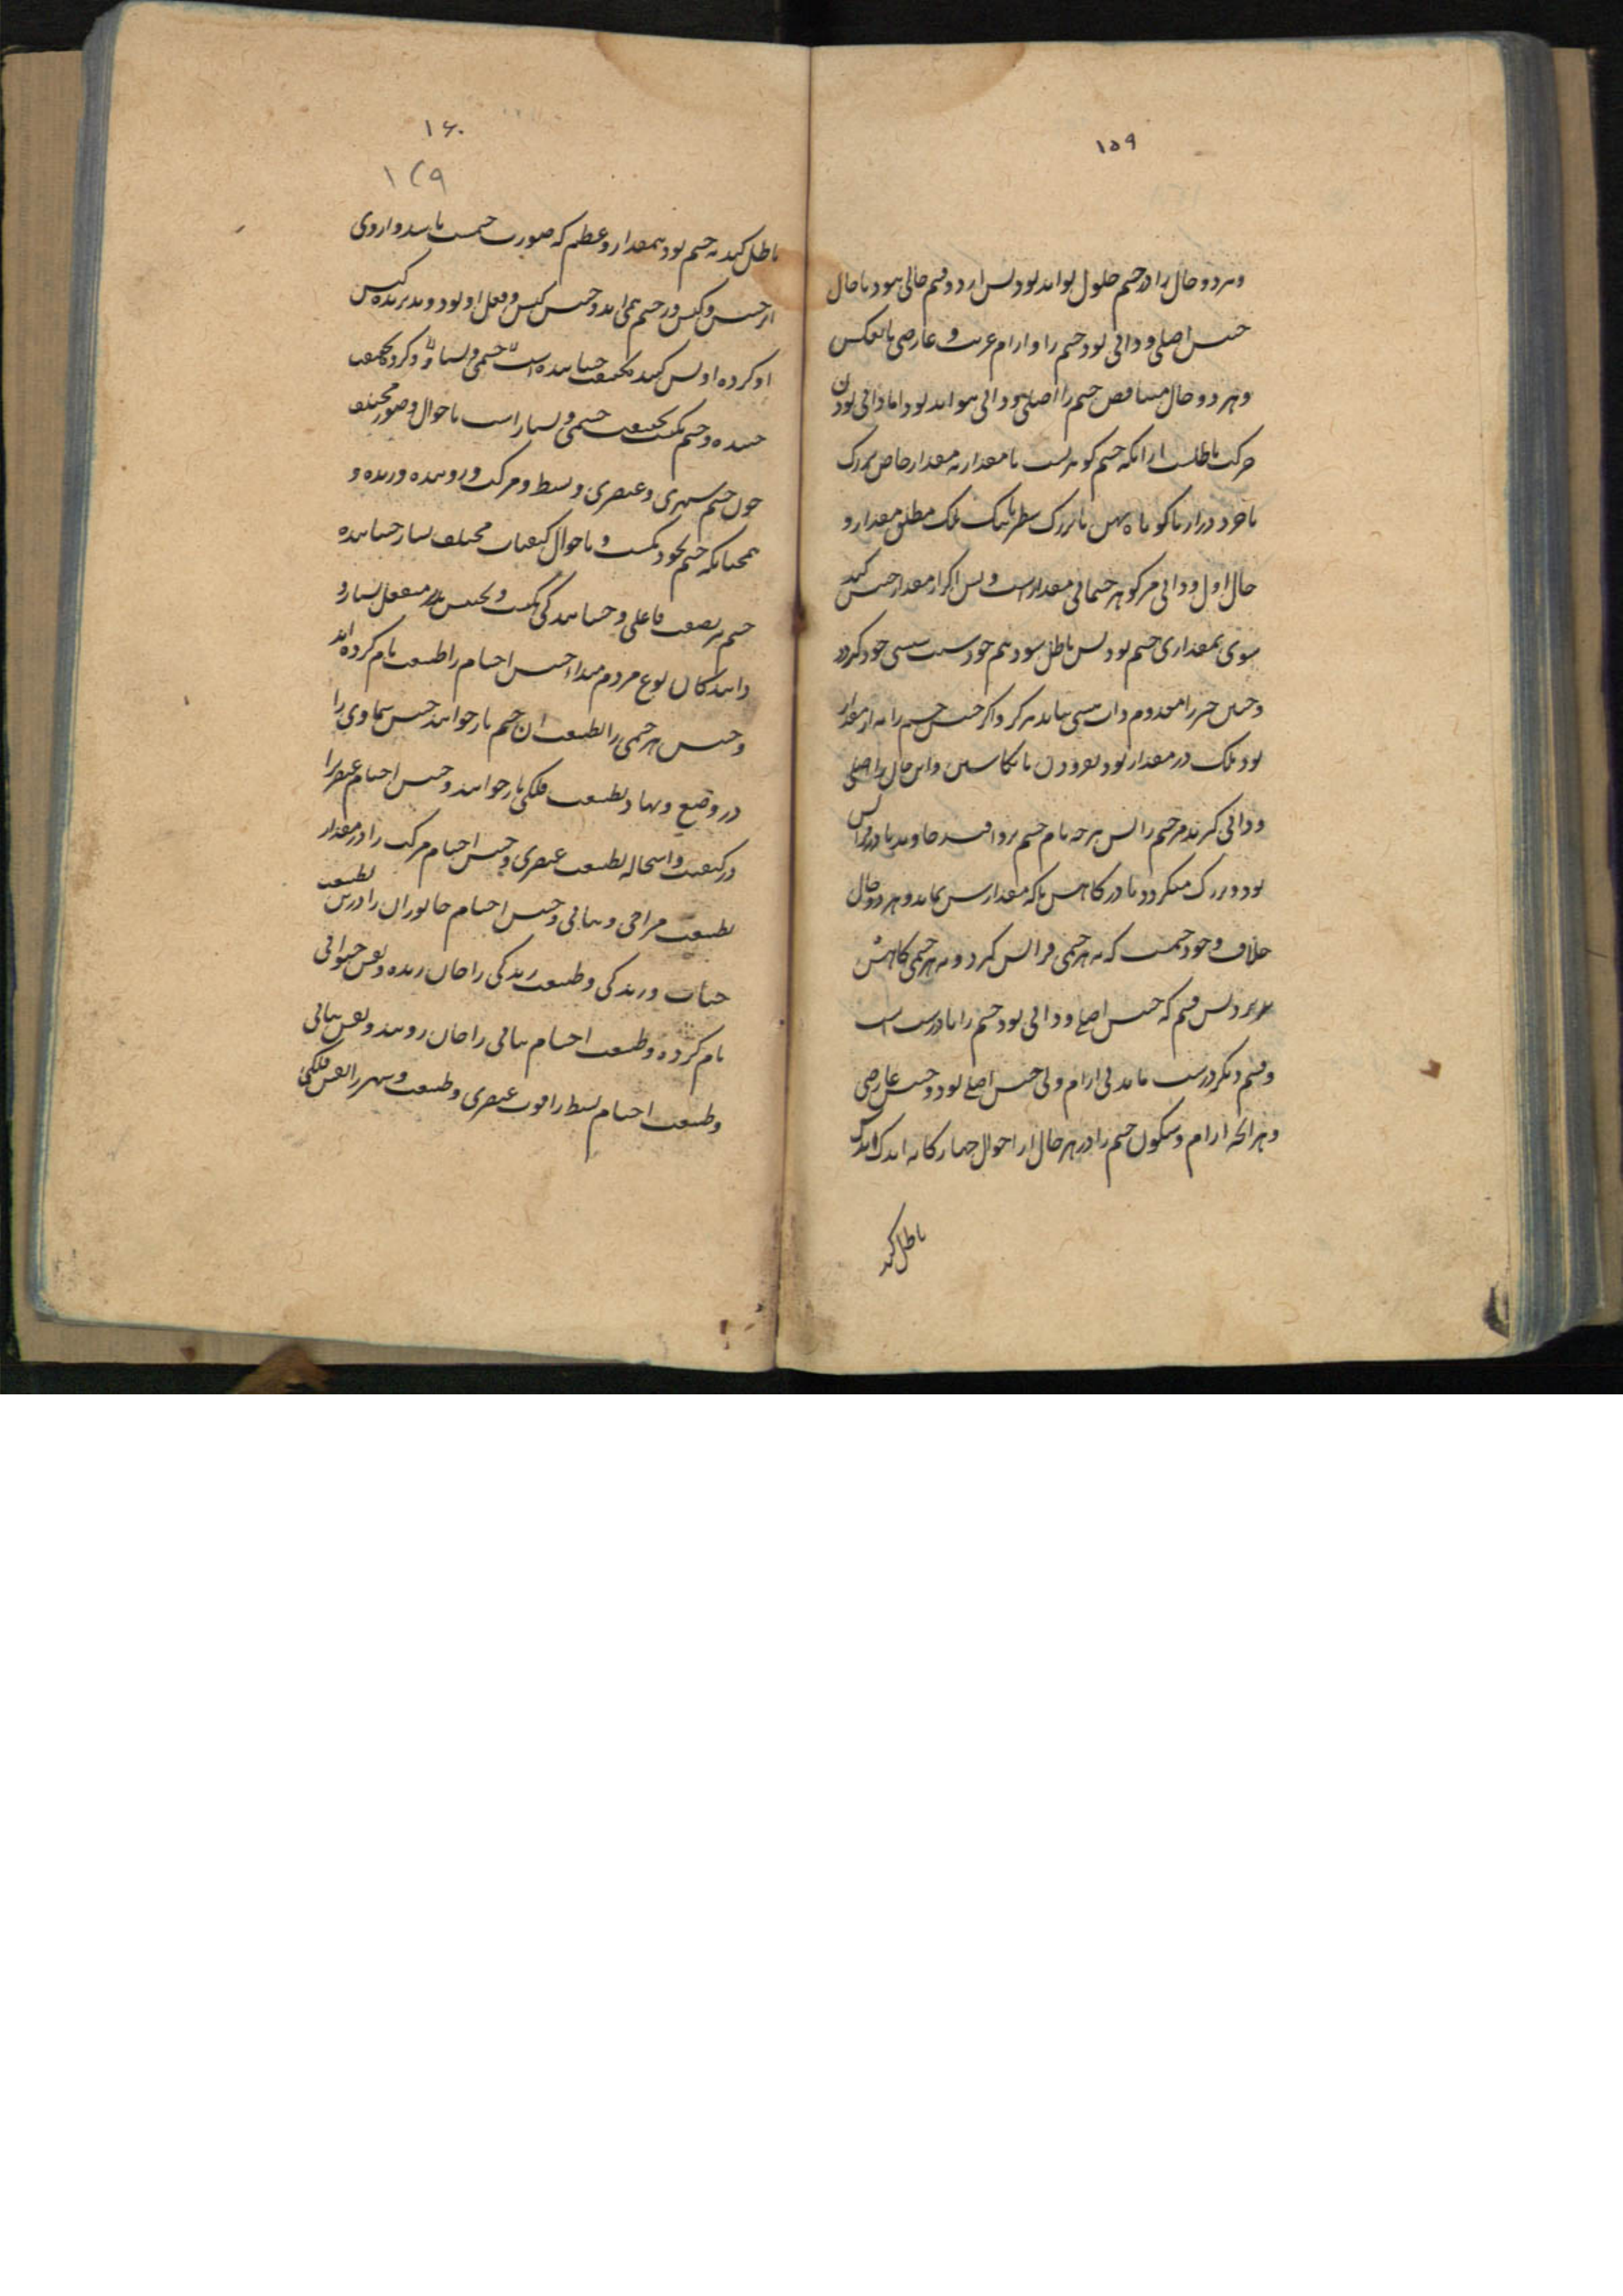 ۱۵۹
و هر دو حال را در جسم حلول تواند بود پس از دو قسم خالی نبود یا حال
جنبش اصلی و ذاتی بود جسم را و ارام غریب و عارضی یا بعکس
و هر دو حال متناقض جسم را اصلی و ذاتی نتواند بود اما ذاتی بودن
حرکت باطلست از انکه جسم گوهریست با مقدار نه مقدار خاص بزرک
یا خرد دراز یا کوتاه پهن یا بزرک سطبر یا تنک بلک مطلق مقدار و
حال اول و ذاتی مر گوهر جسمانی مقدارست و بس اگر از مقدار جنبش کند
سوی بیمقداری جسم بود پس باطل شود هم خود نیست سبب خود گردد
و چنین چیز را معدوم دان هستی نیابد هرگز و اگر جنبش جسم را نه از مقدار
بود بلک در مقدار بود بفزودن یا بکاستن و این حال را اصلی
و ذاتی گیرند مر جسم را پس هرچه نام جسم برو افتد جاوید یا در فزایش
بود و بزرک میگردد یا در کاهش تا که مقدارش بماند و هر دو حال
خلاف وجود جسمست که نه هر جسمی فزایش گیرد و نه هر جسمی کاهش
پذیرد پس قسم که جنبش اصلی و ذاتی بود جسم را نادرست است
و قسم دیگر درست ماند بی ارام ولی جنبش اصلی بود و جنبش عارضی
و هر انچه ارام و سکون جسم را در هر حال از احوال چهارگانه اندک اندک
باطل کند
۱۶۰
۱۲۹
باطل کند نه جسم بود بمقدار و عظم که صورت جسمست باشد و از وی
از جنبش و کنش در جسم همی اید و جنبش کنش و فعل او بود و پذیرنده کنش
او کرده او پس کننده بحقیقت جنباننده است جسمی و بسیار و کرده بحقیقت
جنبنده و جسم یکیست بحقیقت جسمی و بسیار است باحوال و صور مختلف
چون جسم سپهری و عنصری و بسیط و مرکب و روینده و زنده و
همچنانکه جسم بخود یکیست و باحوال کیفیات مختلف بسیار جنباننده
جسم نیز بصفت فاعلی و جنبانندگی یکیست و بجنبش پذیر منفعل بسیار و
دانندگان نوع مردم مبداء جنبش اجسام را طبیعت نام کرده‌اند
و جنبش هر جسمی را بطبیعت ان جسم باز خوانند جنبش سماوی را
در وضع و نهاد بطبیعت فلکی باز خوانند و جنبش اجسام عنصر را
در کیفیت و استحاله بطبیعت عنصری و جنبش اجسام مرکب را در مقدار
بطبیعت مزاجی و نباتی و جنبش اجسام جانوران را در بطبیعت
حیات و زندگی و طبیعت زندگی را جان زنده و نفس حیوانی
نام کرده و طبیعت اجسام نباتی را جان روینده و نفس نباتی
و طبیعت اجسام بسیط را قوت عنصری و طبیعت و سپهر را نفس فلکی